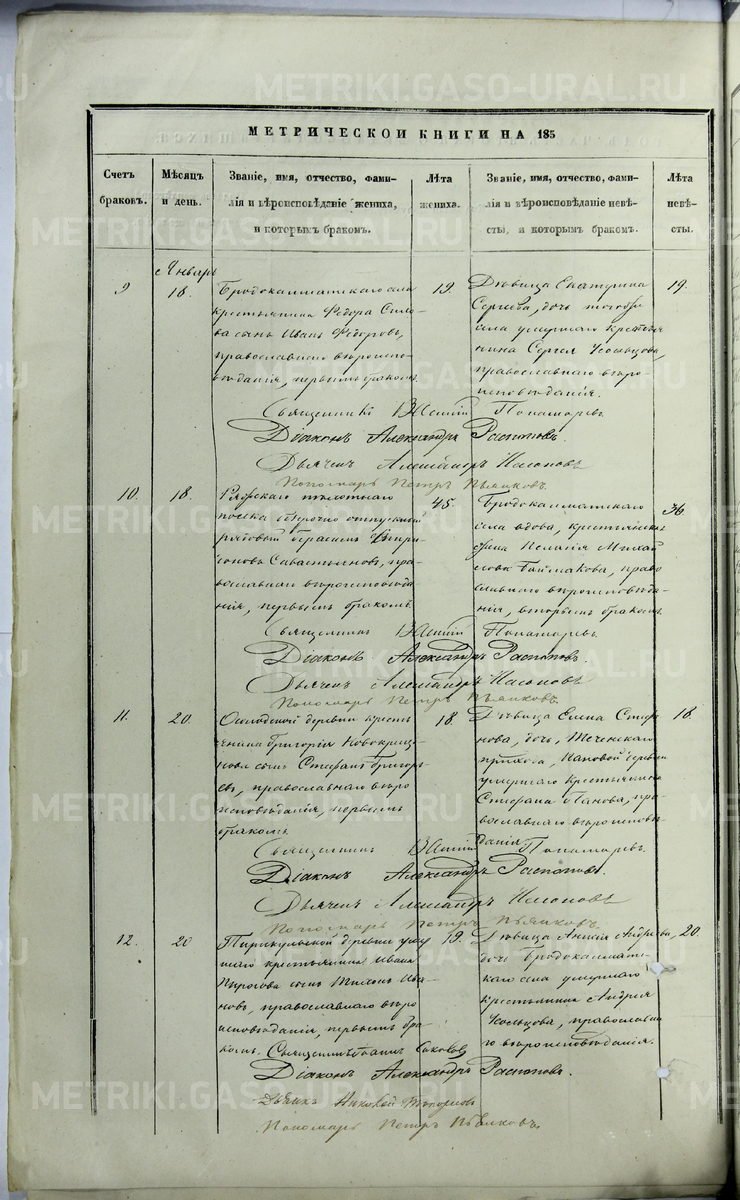 МЕТРИЧЕСКОЙ КНИГИ НА 185
Счетъ браковъ.
Мѣсяцъ и день.
Званіе, имя, отчество, фами-
лія и вѣроисповѣданіе жениха,
и которымъ бракомъ.
Лѣта жениха.
Званіе, имя, отчество, фами-
лія и вѣроисповѣданіе невѣ-
сты, и которымъ бракомъ.
Лѣта невѣ-
сты.
Январь
9
18.
Бродокалматскаго села
крестьянина Ѳедора
сынъ Иванъ Ѳедоровъ,
православнаго вѣроиспо-
вѣданія, первымъ бракомъ.
19.
Дѣвица Екатерина
Сергѣева, дочь тогоже
села умершаго крестья-
нина Сергея
православнаго вѣро-
исповѣданія.
19.
Священникъ Василій Понамаревъ
Діаконъ Александръ Распоповъ.
Дьячекъ Александръ
Пономарь Петръ Пьянковъ.
10.
18.
пѣхотнаго
полка безсрочно отпускный
рядовый Герасимъ
пра-
вославнаго вѣроисповѣда-
нія, первымъ бракомъ
45.
Бродокалматскаго
села вдова, крестьянск
жена Пелагія Михай
лова Баймакова, право
славнаго вѣроисповѣда-
нія, вторымъ бракомъ
36
Священникъ Василій Понамаревъ.
Діаконъ Александръ Распоповъ.
Дьячекъ Александръ
Пономарь Петръ Пьянковъ.
11.
20.
деревни кресть
янина Григорія Новокрещ-
нова сынъ Стефанъ Григорь
евъ, православнаго вѣро
исповѣданія, первымъ
бракомъ
18.
Дѣвица Елена Стефа
нова, дочь, Теченскаго
прихода, Пановой деревни
умершаго крестьянина
Стефана Панова, пра-
вославнаго вѣроисповѣ
данія
18.
Священникъ Василій Понамаревъ.
Діаконъ Александръ Распоповъ.
Дьячекъ Александръ
Пономарь Петръ Пьянковъ.
12.
20
деревни умер
шаго крестьянина Ивана
Пирогова сынъ Ива-
новъ, православнаго вѣро
исповѣданія, первымъ бра-
комъ.
19.
Дѣвица Андреева,
дочь Бродокалмат-
скаго села умершаго
крестьянина Андрея
православна
го вѣроисповѣданія.
20.
Священникъ Соколовъ
Діаконъ Александръ Распоповъ.
Дьячекъ Николай
Пономарь Петръ Пьянковъ.
METRIKI.GASO-URAL.RU